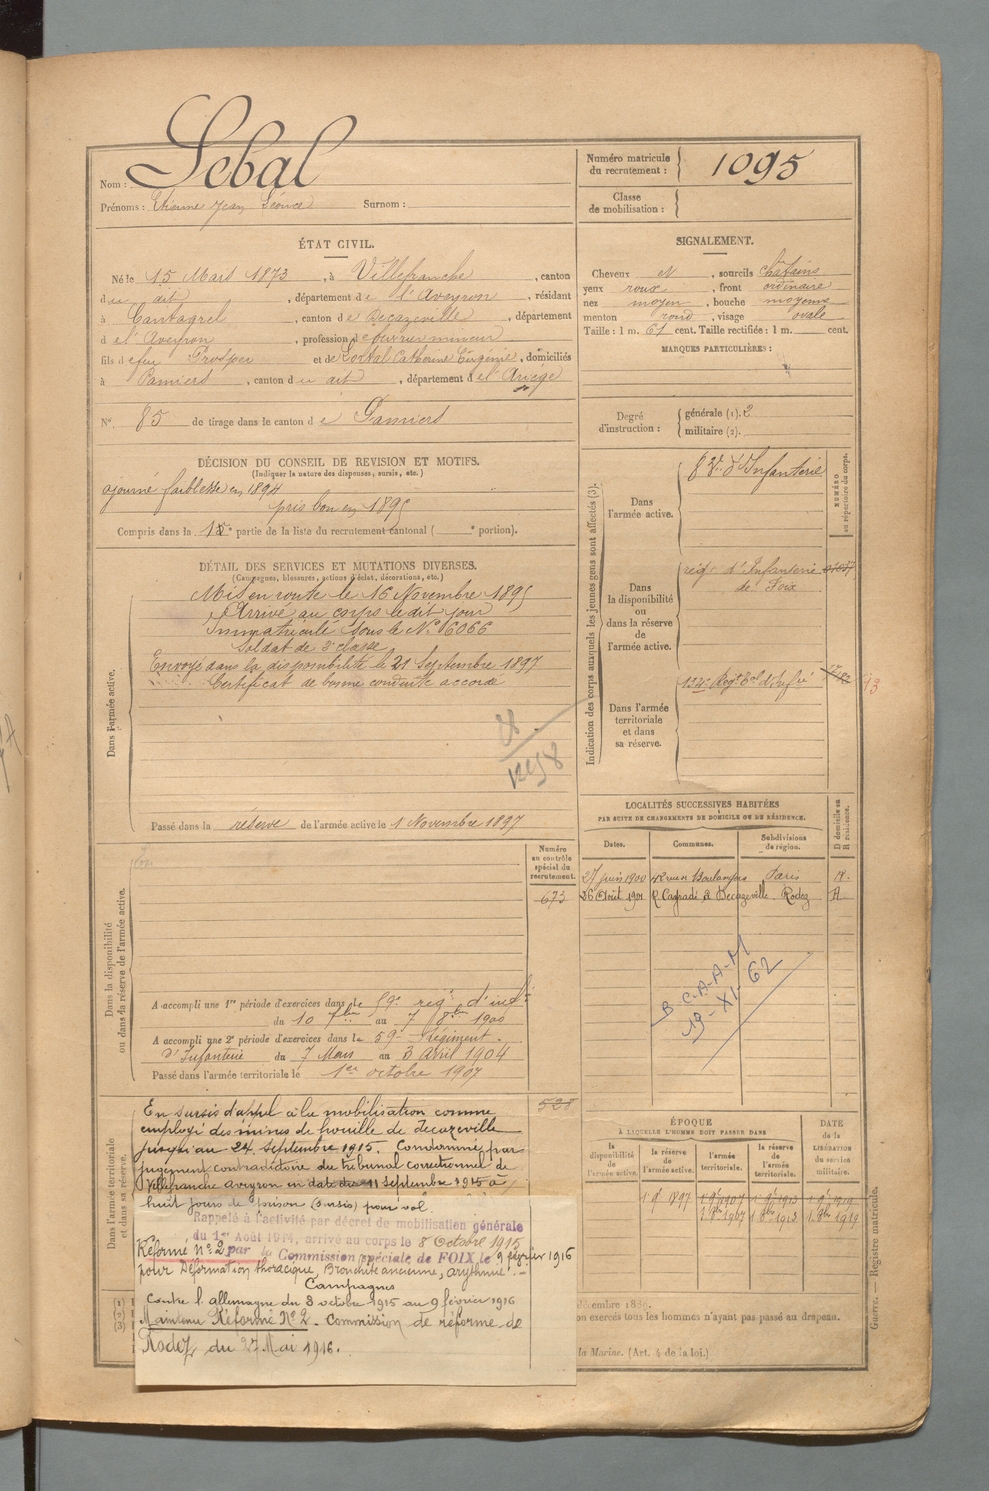 Nom : Lebal
Prénoms : Etienne Jean Léonce Surnom :
Numéro matricule du recrutement : 1095
Classe de mobilisation :
ÉTAT CIVIL.
Né le 15 Mars 1873, à Villefranche, canton
du dit, département de l'Aveyron, résidant
à Cantagrel, canton de Decazeville, département
de l'Aveyron, profession d'ouvrier mineur
fils de feu Prosper et de Lortal Catherine Eugénie, domiciliés
à Pamiers, canton du dit, département de l'Ariège
N° 85 de tirage dans le canton de Pamiers
SIGNALEMENT.
Cheveux N, sourcils châtains
yeux roux, front ordinaire
nez moyen, bouche moyenne
menton rond, visage ovale
Taille : 1 m. 61 cent. Taille rectifiée : 1 m. cent.
MARQUES PARTICULIÈRES :
Degré d'instruction : générale (1). 2
militaire (2).
DÉCISION DU CONSEIL DE REVISION ET MOTIFS.
(Indiquer la nature des dispenses, sursis, etc.)
ajourné faiblesse en 1894
pris bon en 1895
Compris dans la 1e partie de la liste du recrutement cantonal ( e portion).
DÉTAIL DES SERVICES ET MUTATIONS DIVERSES.
(Campagnes, blessures, actions d'éclat, décorations, etc.)
Dans l'armée active.
Mis en route le 16 Novembre 1895
Arrivé au corps le dit jour
Immatriculé sous le N° 6066
Soldat de 2e classe
Envoyé dans la disponibilité le 21 Septembre 1897
Certificat de bonne conduite accordé
Passé dans la réserve de l'armée active le 1 Novembre 1897
Indication des corps auxquels les jeunes gens sont affectés (3).
NUMÉRO au répertoire du corps.
Dans l'armée active.
d'Infanterie
Dans la disponibilité ou dans la réserve de l'armée active.
régt d'Infanterie
de Foix
Dans l'armée territoriale et dans sa réserve.
134e Régt tal d'Infie
13
LOCALITÉS SUCCESSIVES HABITÉES
PAR SUITE DE CHANGEMENTS DE DOMICILE OU DE RÉSIDENCE.
Dates. Communes. Subdivisions de région. D domicile ou R résidence.
27 juin 1900 Paris R.
26 Août 1901 à Decazeville Rodez
B.C.A.A.M
19-XI-62
Dans la disponibilité ou dans la réserve de l'armée active.
Numéro au contrôle spécial du recrutement.
673
A accompli une 1re période d'exercices dans le 59e régt d'infie
du 10 7bre au 7 8bre 1900
A accompli une 2e période d'exercices dans le 59e Régiment
d'Infanterie du 7 Mars au 3 Avril 1904
Passé dans l'armée territoriale le 1er octobre 1907
Dans l'armée territoriale et dans sa réserve.
528
En sursis d'appel à la mobilisation comme
employé des mines de houille de decazeville
jusqu'au 24 septembre 1915. Condamné par
jugement contradictoire du tribunal correctionnel de
Villefranche aveyron en date du 11 septembre 1915 à
huit jours de prison (sursis) pour vol
Rappelé à l'activité par décret de mobilisation générale
du 1er Août 1914, arrivé au corps le 8 Octobre 1915
Réformé N° 2 par la Commission spéciale de FOIX le 9 février 1916
pour Déformation thoracique, Bronchite ancienne, arythmie.-
Campagnes
Contre l'allemagne du 8 octobre 1915 au 9 février 1916
Maintenu Réformé N° 2 - Commission de réforme de
Rodez du 27 Mai 1916.
ÉPOQUE
À LAQUELLE L'HOMME DOIT PASSER DANS
la disponibilité de l'armée active. la réserve de l'armée active. l'armée territoriale. la réserve de l'armée territoriale.
DATE de la LIBÉRATION du service militaire.
1 9bre 1897 1 9bre 1907 1 9bre 1913 1 9bre 1919
1 8bre 1907 1 8bre 1913 1 8bre 1919
décembre 1889.
on exercés tous les hommes n'ayant pas passé au drapeau.
la Marine. (Art. 4 de la loi.)
(1)
(2)
(3)
Guerre. — Registre matricule.